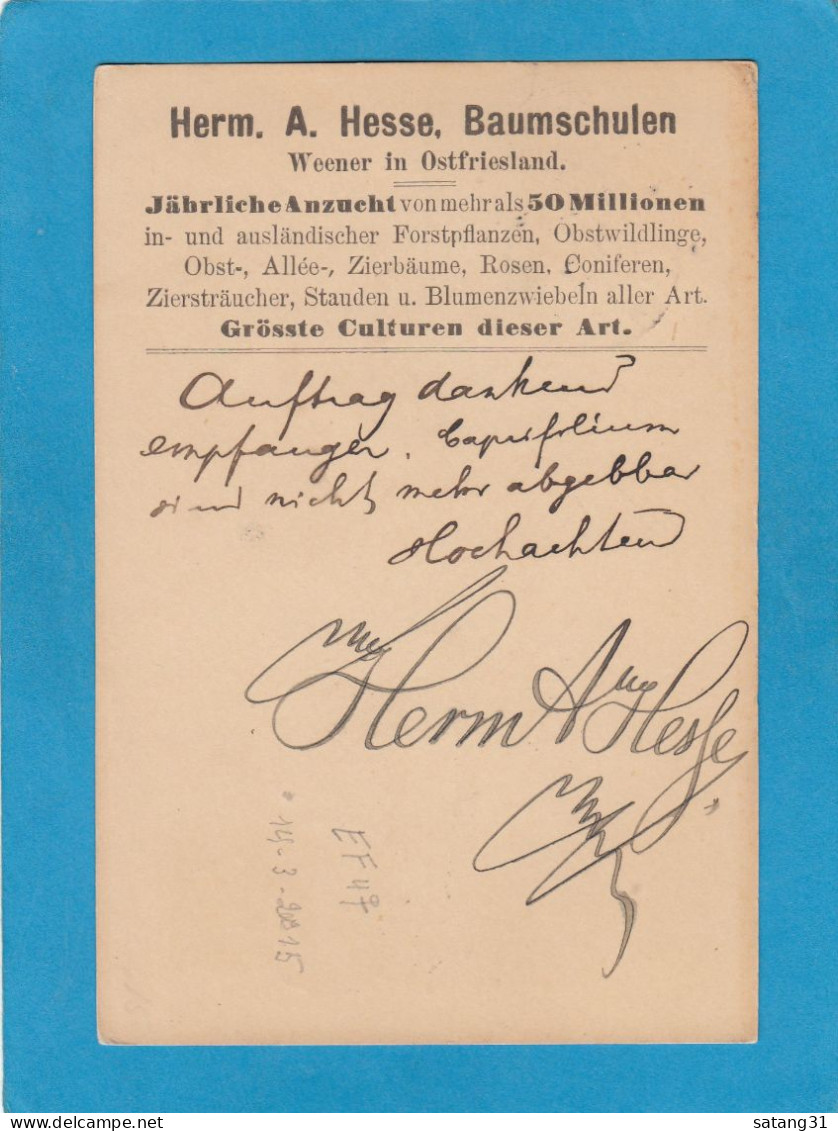 Herm. A. Hesse, Baumschulen
Weener in Ostfriesland.
Jährliche Anzucht von mehr als 50 Millionen
in- und ausländischer Forstpflanzen, Obstwildlinge,
Obst-, Allée-, Zierbäume, Rosen, Coniferen,
Ziersträucher, Stauden u. Blumenzwiebeln aller Art.
Grösste Culturen dieser Art.
Auftrag dankend
empfangen. Caprifolium
sind nicht mehr abgebbar
Hochachtend
Herm A Hesse
EF 47
14-3-2015
delcampe.net
satang31